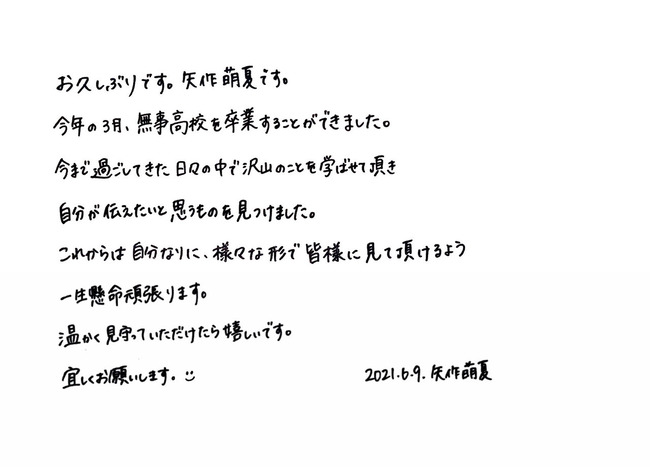 お久しぶりです。矢作萌夏です。
今年の3月、無事高校を卒業することができました。
今まで過ごしてきた日々の中で沢山のことを学ばせて頂き
自分が伝えたいと思うものを見つけました。
これからは自分なりに、様々な形で皆様に見て頂けるよう
一生懸命頑張ります。
温かく見守っていただけたら嬉しいです。
宜しくお願いします。:)
2021.6.9. 矢作萌夏